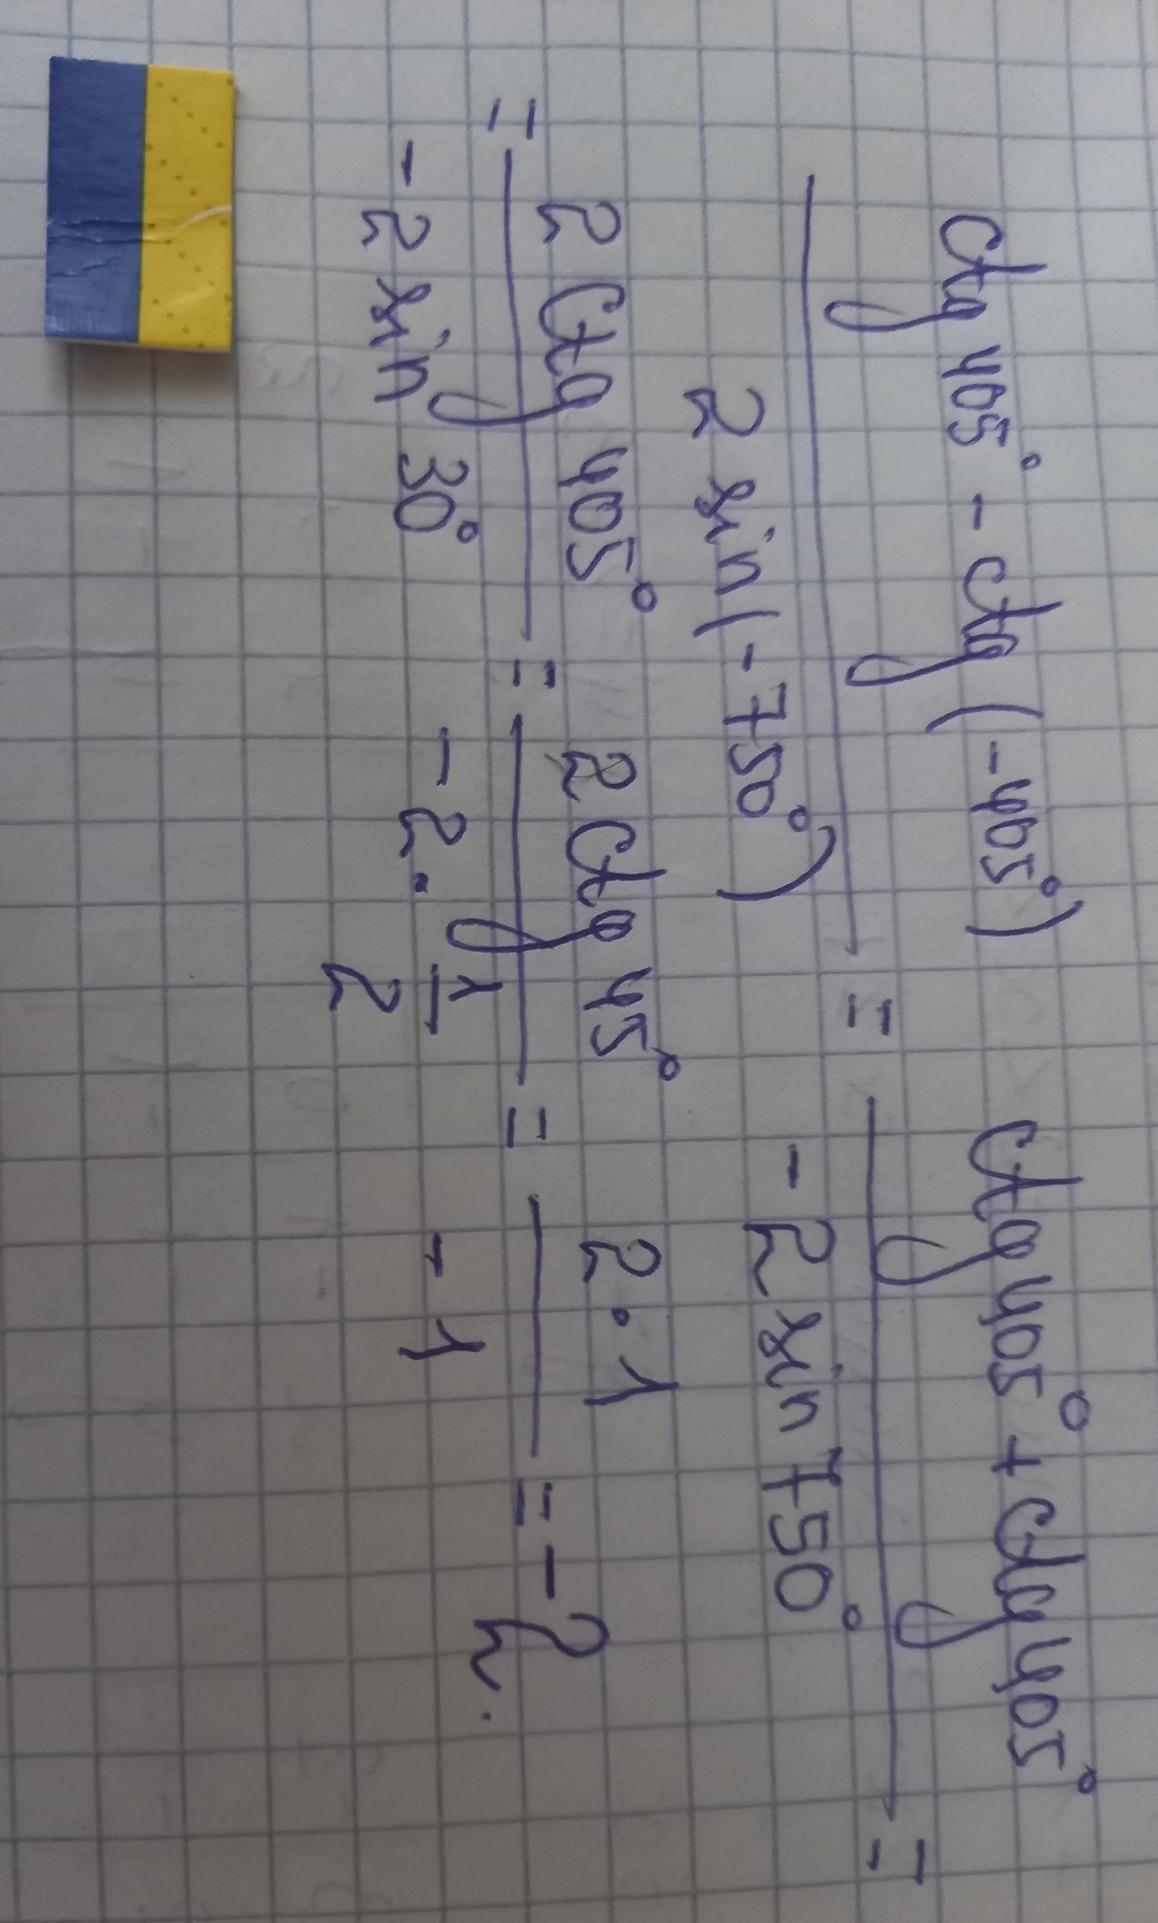 ctg 405° - ctg (-405°) / 2 sin (-750°) = ctg 405° + ctg 405° / -2 sin 750° =
= 2 ctg 405° / -2 sin 30° = 2 ctg 45° / -2 · 1/2 = 2 · 1 / -1 = -2.